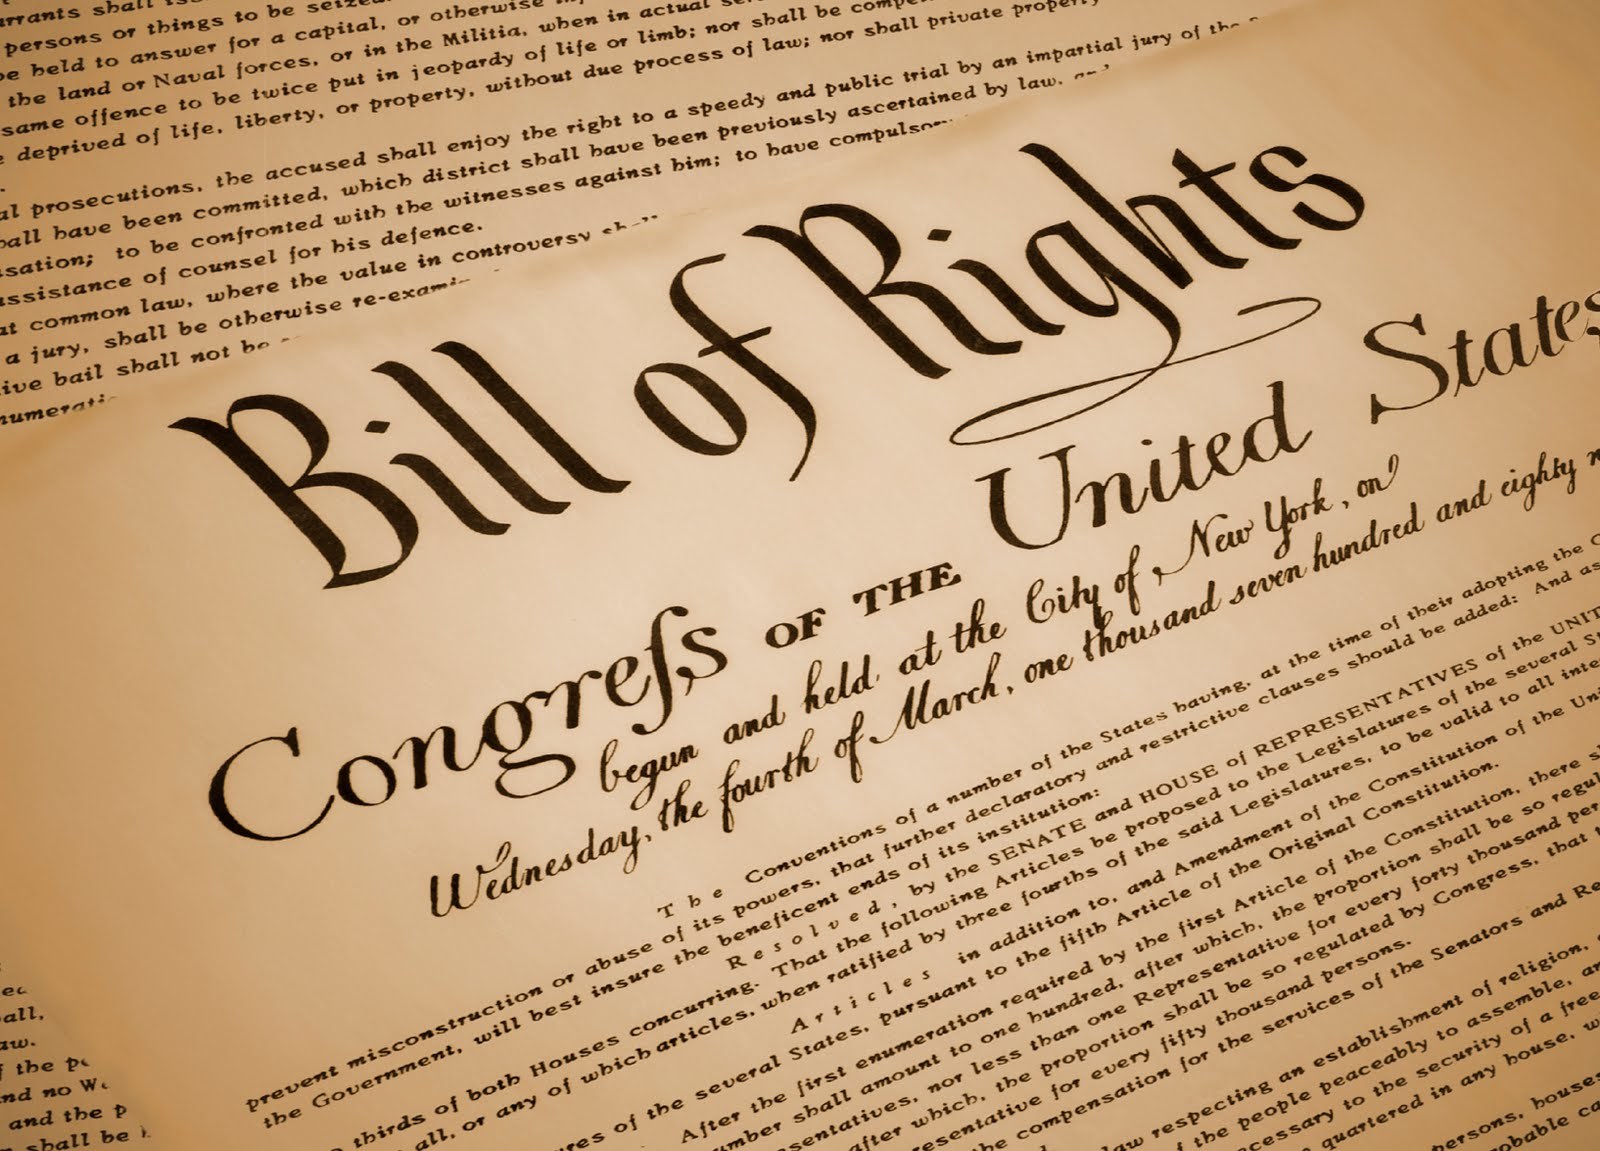 rrants shall iss
persons or things to be seized.
be held to answer for a capital, or otherwise
the land or Naval forces, or in the Militia, when in actual
same offence to be twice put in jeopardy of life or limb; nor shall be
deprived of life, liberty, or property, without due process of law; nor shall private property
al prosecutions, the accused shall enjoy the right to a speedy and public trial by an impartial jury of the
hall have been committed, which district shall have been previously ascertained by law, and
sation; to be confronted with the witnesses against him; to have compulsory
assistance of counsel for his defence.
at common law, where the value in controversy shall
a jury, shall be otherwise re-exami
ive bail shall not be
numerati
Bill of Rights
Congreſs OF THE United States
begun and held at the City of New York, on
Wednesday, the fourth of March, one thousand seven hundred and eighty n
The Conventions of a number of the States having, at the time of their adopting the C
prevent misconstruction or abuse of its powers, that further declaratory and restrictive clauses should be added: And as
the Government, will best insure the beneficent ends of its institution:
Resolved, by the SENATE and HOUSE of REPRESENTATIVES of the UNIT
thirds of both Houses concurring. That the following Articles be proposed to the Legislatures of the several S
all, or any of which articles, when ratified by three fourths of the said Legislatures, to be valid to all inte
Articles in addition to, and Amendment of the Constitution of the Uni
ures of the several States, pursuant to the fifth Article of the Original Constitution.
After the first enumeration required by the first Article of the Constitution, there s
umber shall amount to one hundred, after which, the proportion shall be so regul
sentatives, nor less than one Representative for every forty thousand per
after which, the proportion shall be so regulated by Congress, that t
resentative for every fifty thousand persons.
the compensation for the services of the Senators and Re
law respecting an establishment of religion,
f the people peaceably to assemble, an
ecessary to the security of a free
quartered in any house, w
persons, houses
robable ca
all,
aw.
f the pe
nd no Wa
and the p
shall be